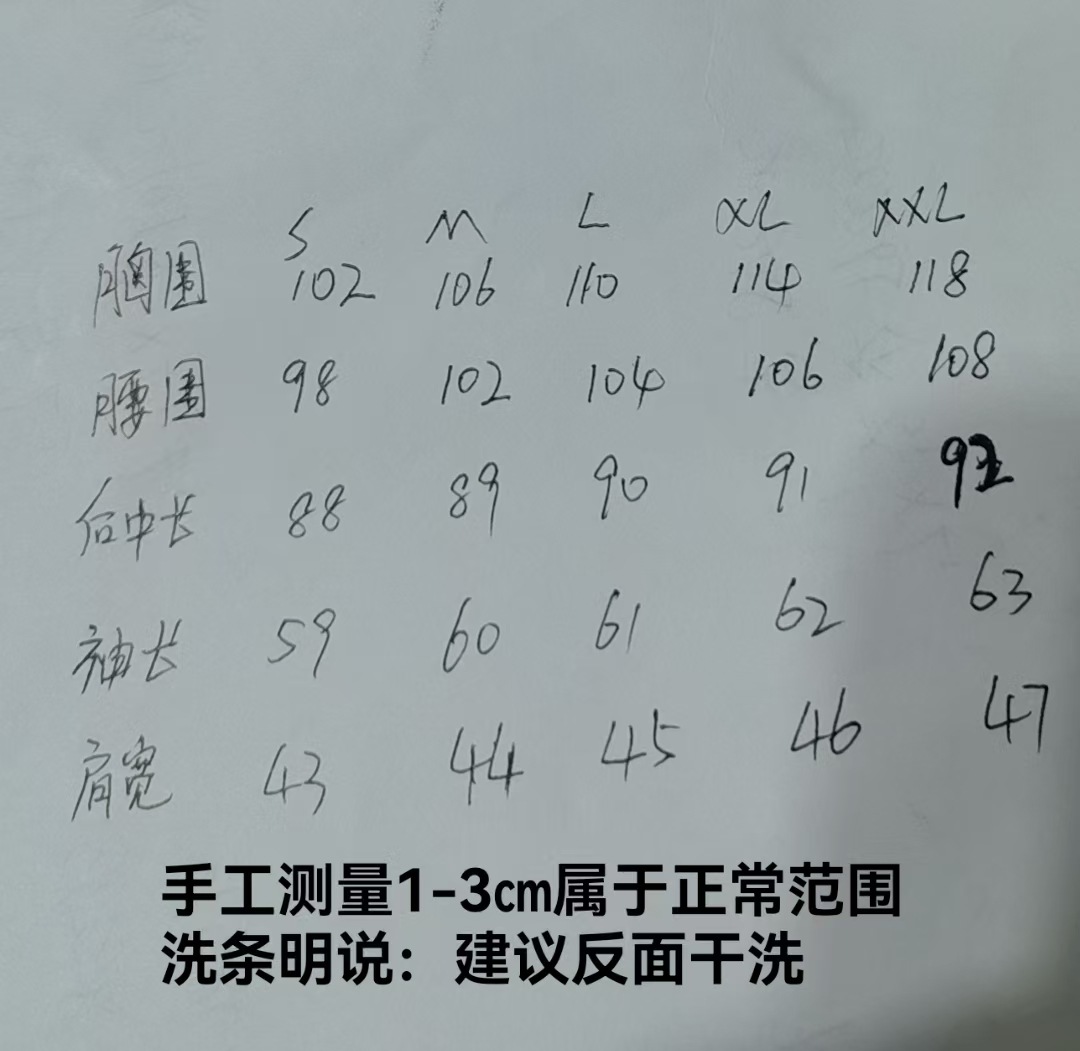 S M L XL XXL
胸围 102 106 110 114 118
腰围 98 102 104 106 108
后中长 88 89 90 91 92
袖长 59 60 61 62 63
肩宽 43 44 45 46 47
手工测量1-3㎝属于正常范围
洗条明说：建议反面干洗